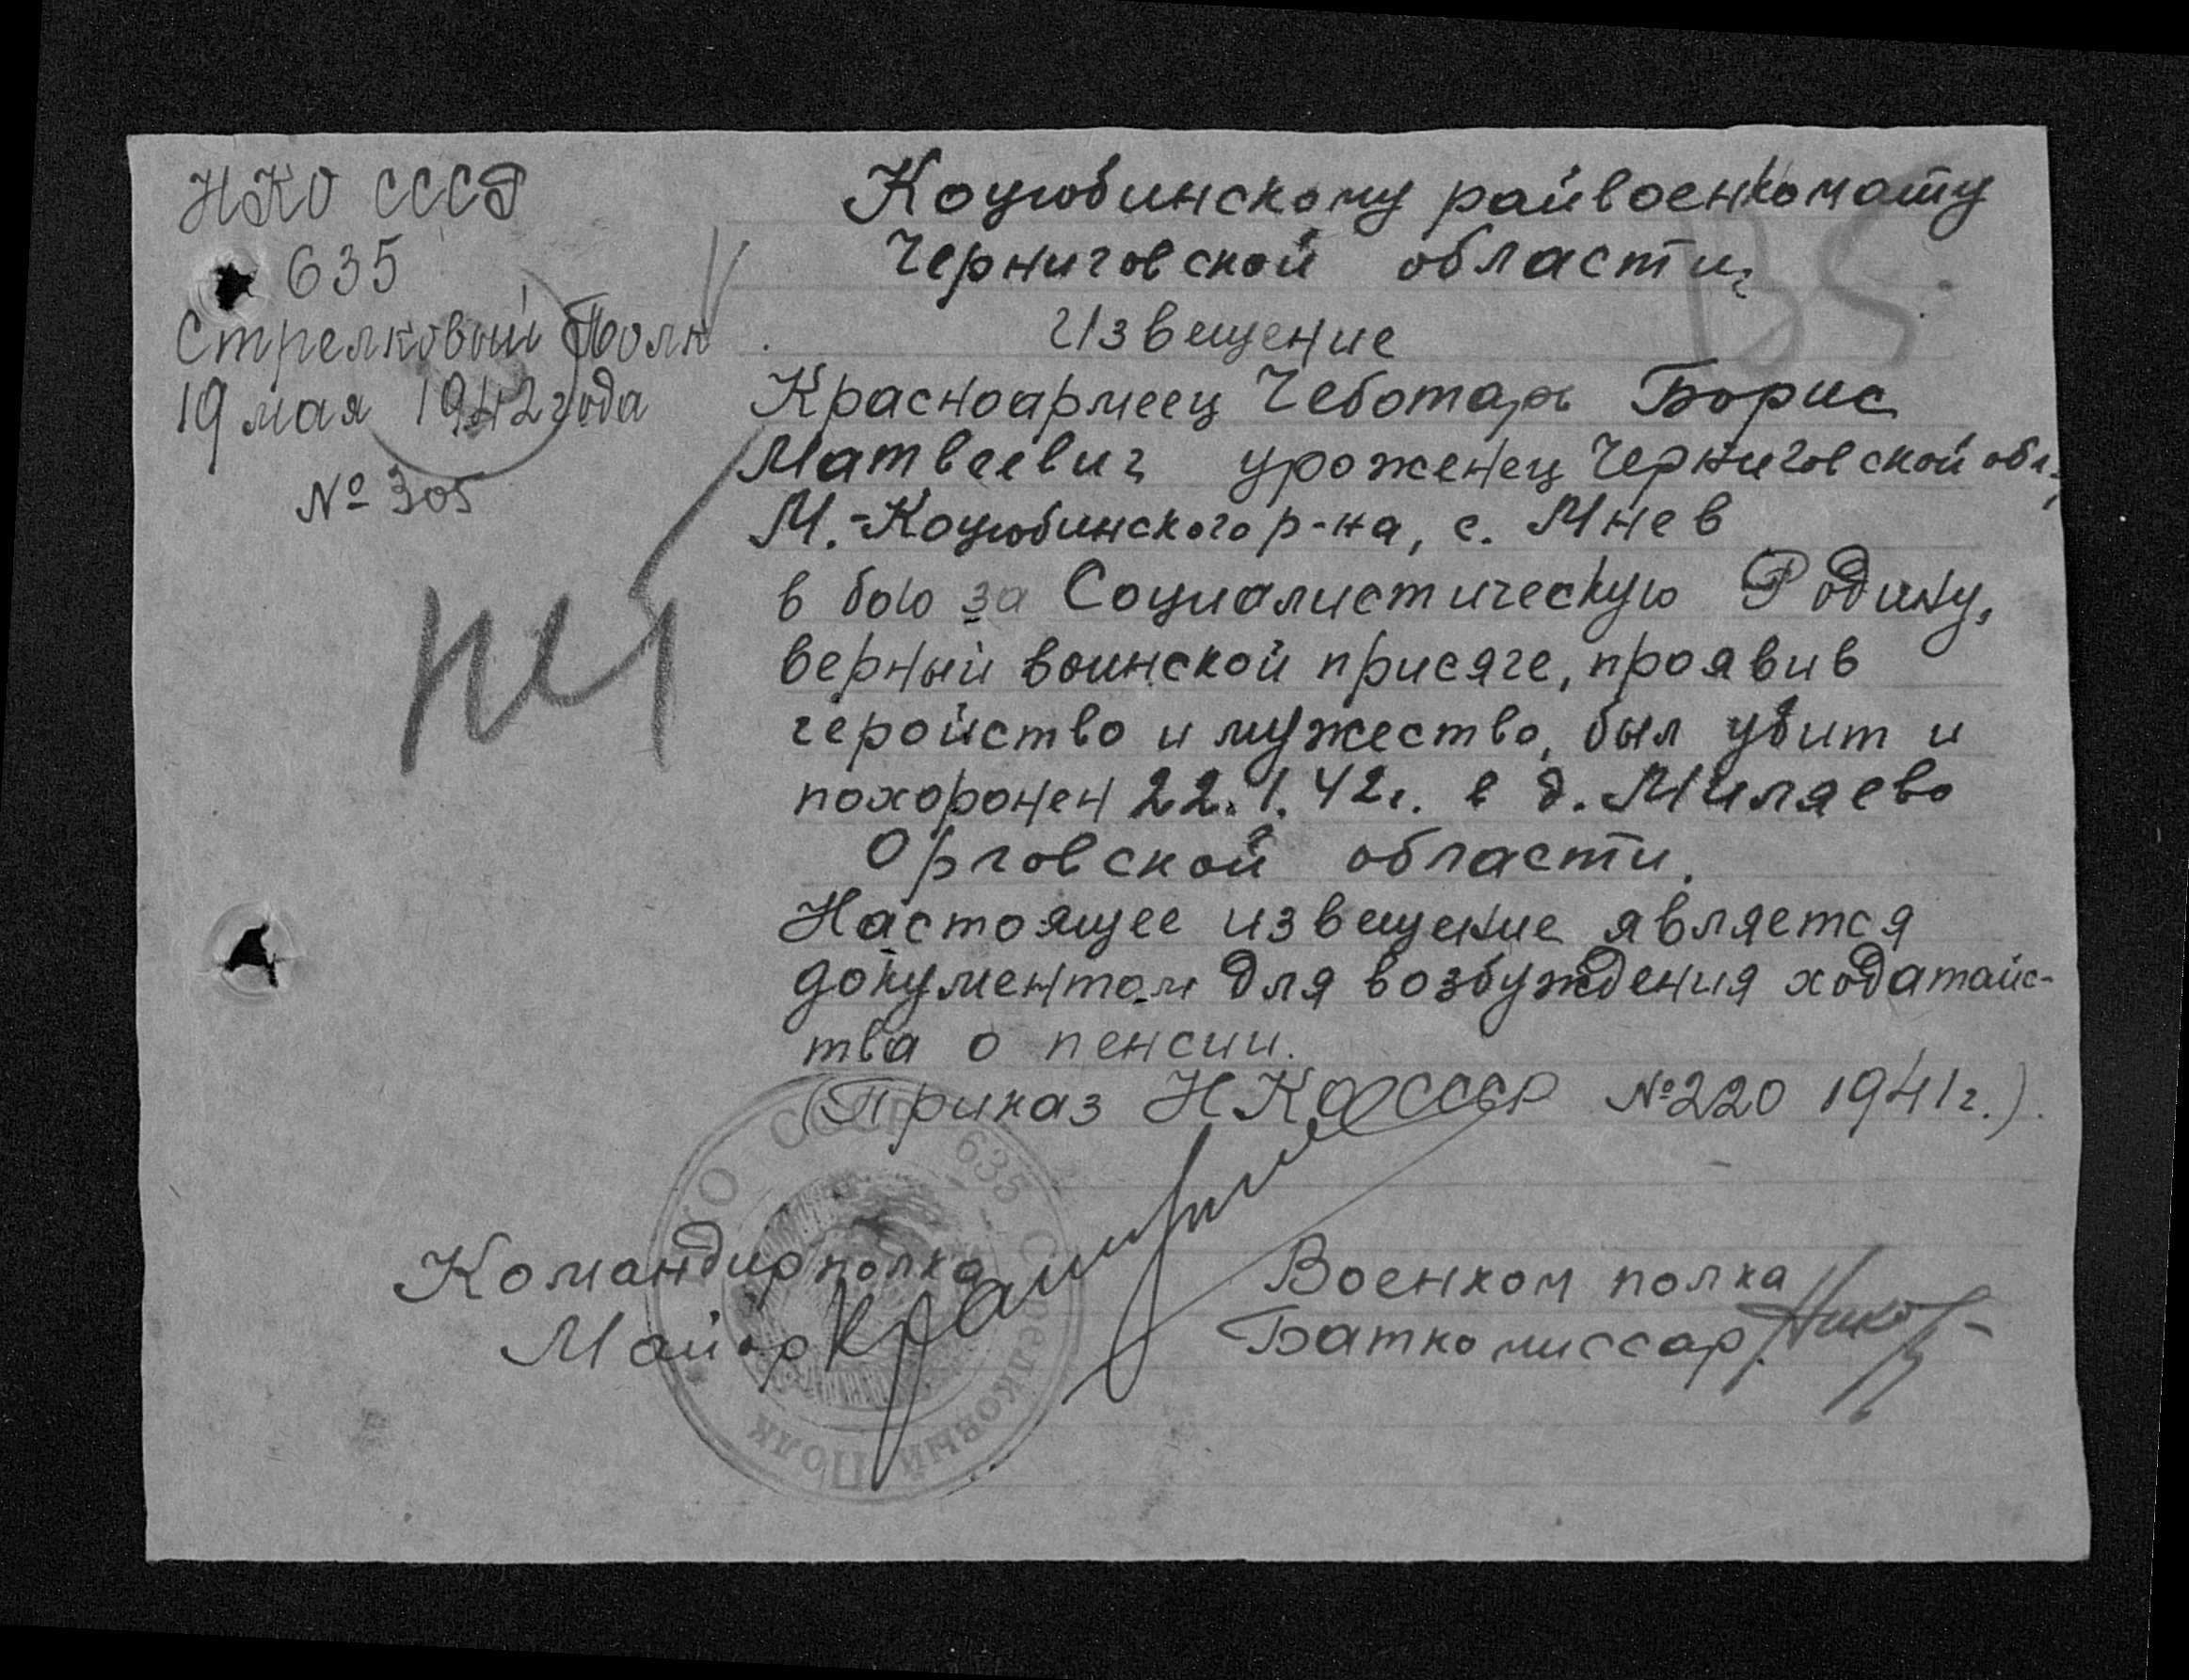 НКО СССР
635
Стрелковый Полк
19 мая 1942 года
№ 305
Коцюбинскому райвоенкомату
Черниговской области
Извещение
Красноармеец Чеботарь Борис
Матвеевич уроженец Черниговской обл.,
М.-Коцюбинского р-на, с. Мнев
в бою за Социалистическую Родину,
верный воинской присяге, проявив
геройство и мужество, был убит и
похоронен 22.1.42г. в д. Миляево
Орловской области.
Настоящее извещение является
документом для возбуждения ходатайс-
тва о пенсии.
(Приказ НКО СССР № 220 1941г.).
Командир полка
Майор
Военком полка
Баткомиссар
НКО СССР 635 Стрелковый Полк